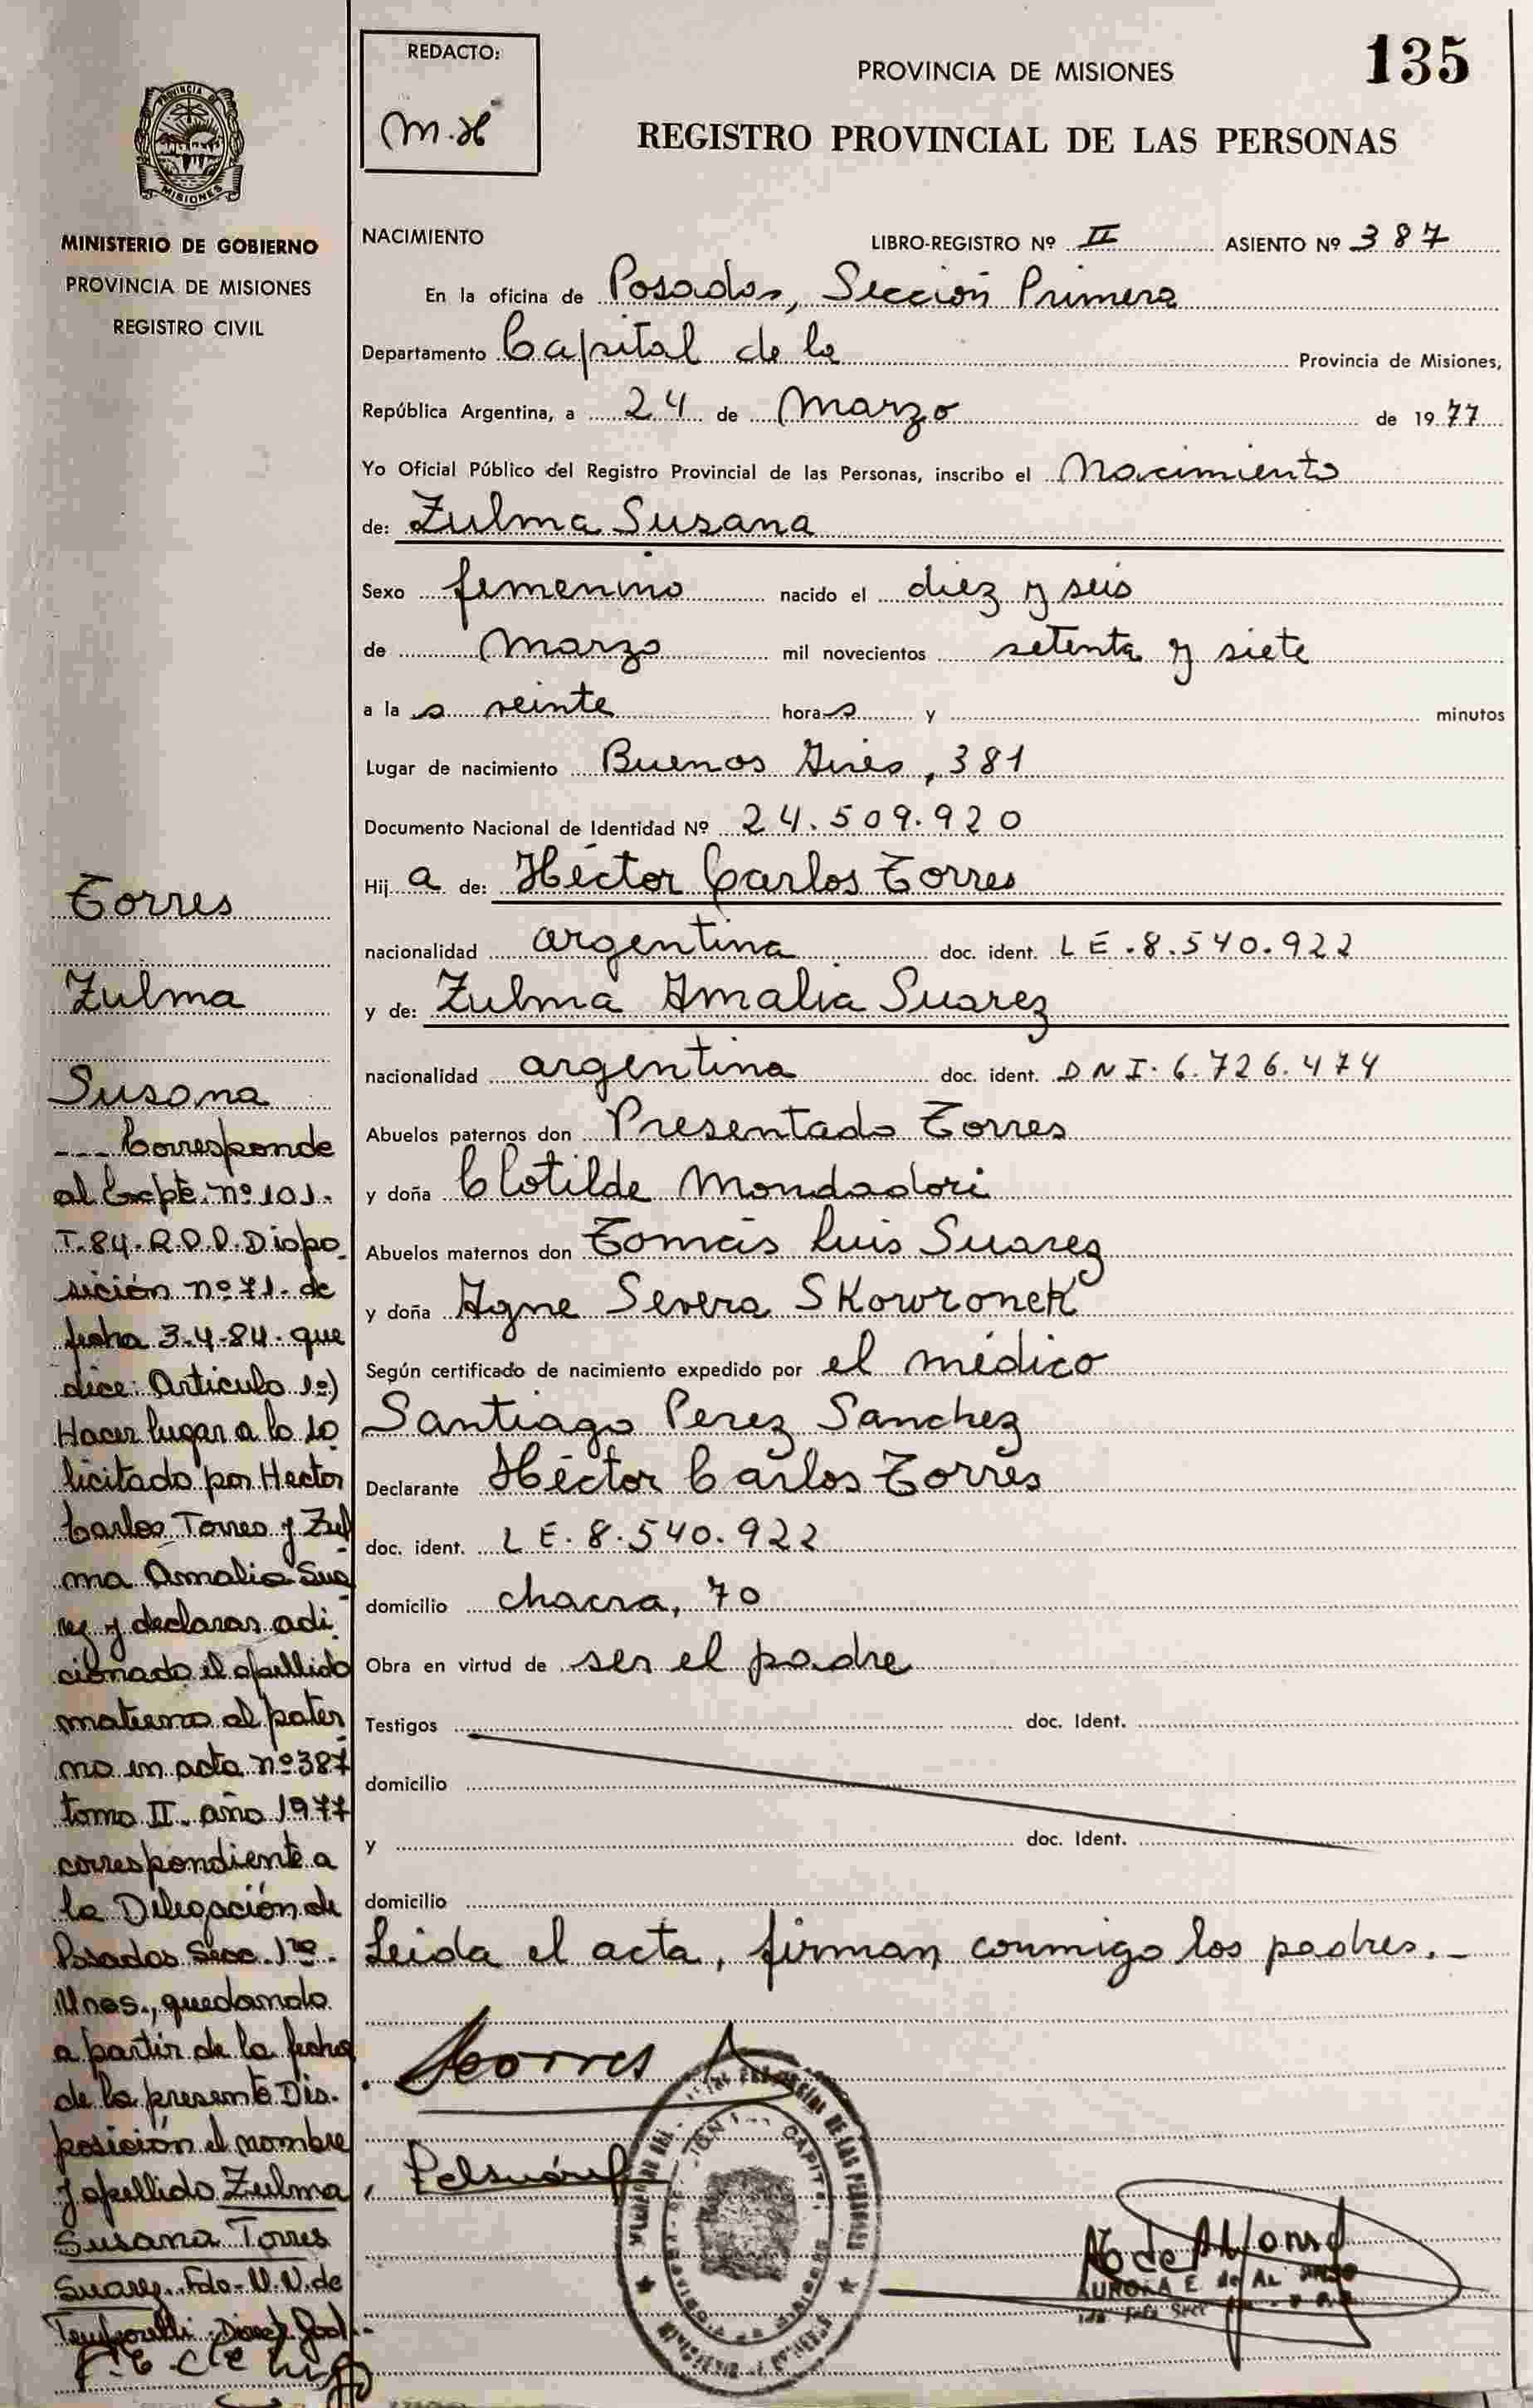 REDACTO:
M.H
PROVINCIA DE MISIONES
135
REGISTRO PROVINCIAL DE LAS PERSONAS
PROVINCIA DE
MISIONES
MINISTERIO DE GOBIERNO
PROVINCIA DE MISIONES
REGISTRO CIVIL
NACIMIENTO LIBRO-REGISTRO Nº II ASIENTO Nº 387
En la oficina de Posadas, Sección Primera
Departamento Capital de la Provincia de Misiones,
República Argentina, a 24 de Marzo de 1977
Yo Oficial Público del Registro Provincial de las Personas, inscribo el Nacimiento
de: Zulma Susana
Sexo femenino nacido el diez y seis
de Marzo mil novecientos setenta y siete
a la s veinte hora s y minutos
Lugar de nacimiento Buenos Aires, 381
Documento Nacional de Identidad Nº 24.509.920
Hij a de: Héctor Carlos Torres
nacionalidad argentina doc. ident. L E.8.540.922
y de: Zulma Amalia Suarez
nacionalidad argentina doc. ident. D N I. 6.726.474
Abuelos paternos don Presentado Torres
y doña Clotilde Mondadori
Abuelos maternos don Tomás Luis Suarez
y doña Agne Severa Skowronek
Según certificado de nacimiento expedido por el médico
Santiago Perez Sanchez
Declarante Héctor Carlos Torres
doc. ident. L E. 8.540.922
domicilio chacra, 70
Obra en virtud de ser el padre
Testigos doc. Ident.
domicilio
y doc. Ident.
domicilio
Leida el acta, firman conmigo los padres.-
Torres
AURORA E. de AL
Torres
Zulma
Susana
--- Corresponde
al Expte. nº 101-
T-84-R.P.P. Dispo
sición nº 71- de
fecha 3-4-84- que
dice: Articulo 1º)
Hacer lugar a lo so
licitado por Hector
Carlos Torres y Zul
ma Amalia Sua
rez y declaras adi
cionado el apellido
materno al pater
no en acta nº 387
tomo II- año 1977
correspondiente a
la Delegación de
Posadas Secc. 1ra-
Mnes., quedando
a partir de la fecha
de la presente Dis-
posición el nombre
y apellido Zulma
Susana Torres
Suarez. Fdo-N.N. de